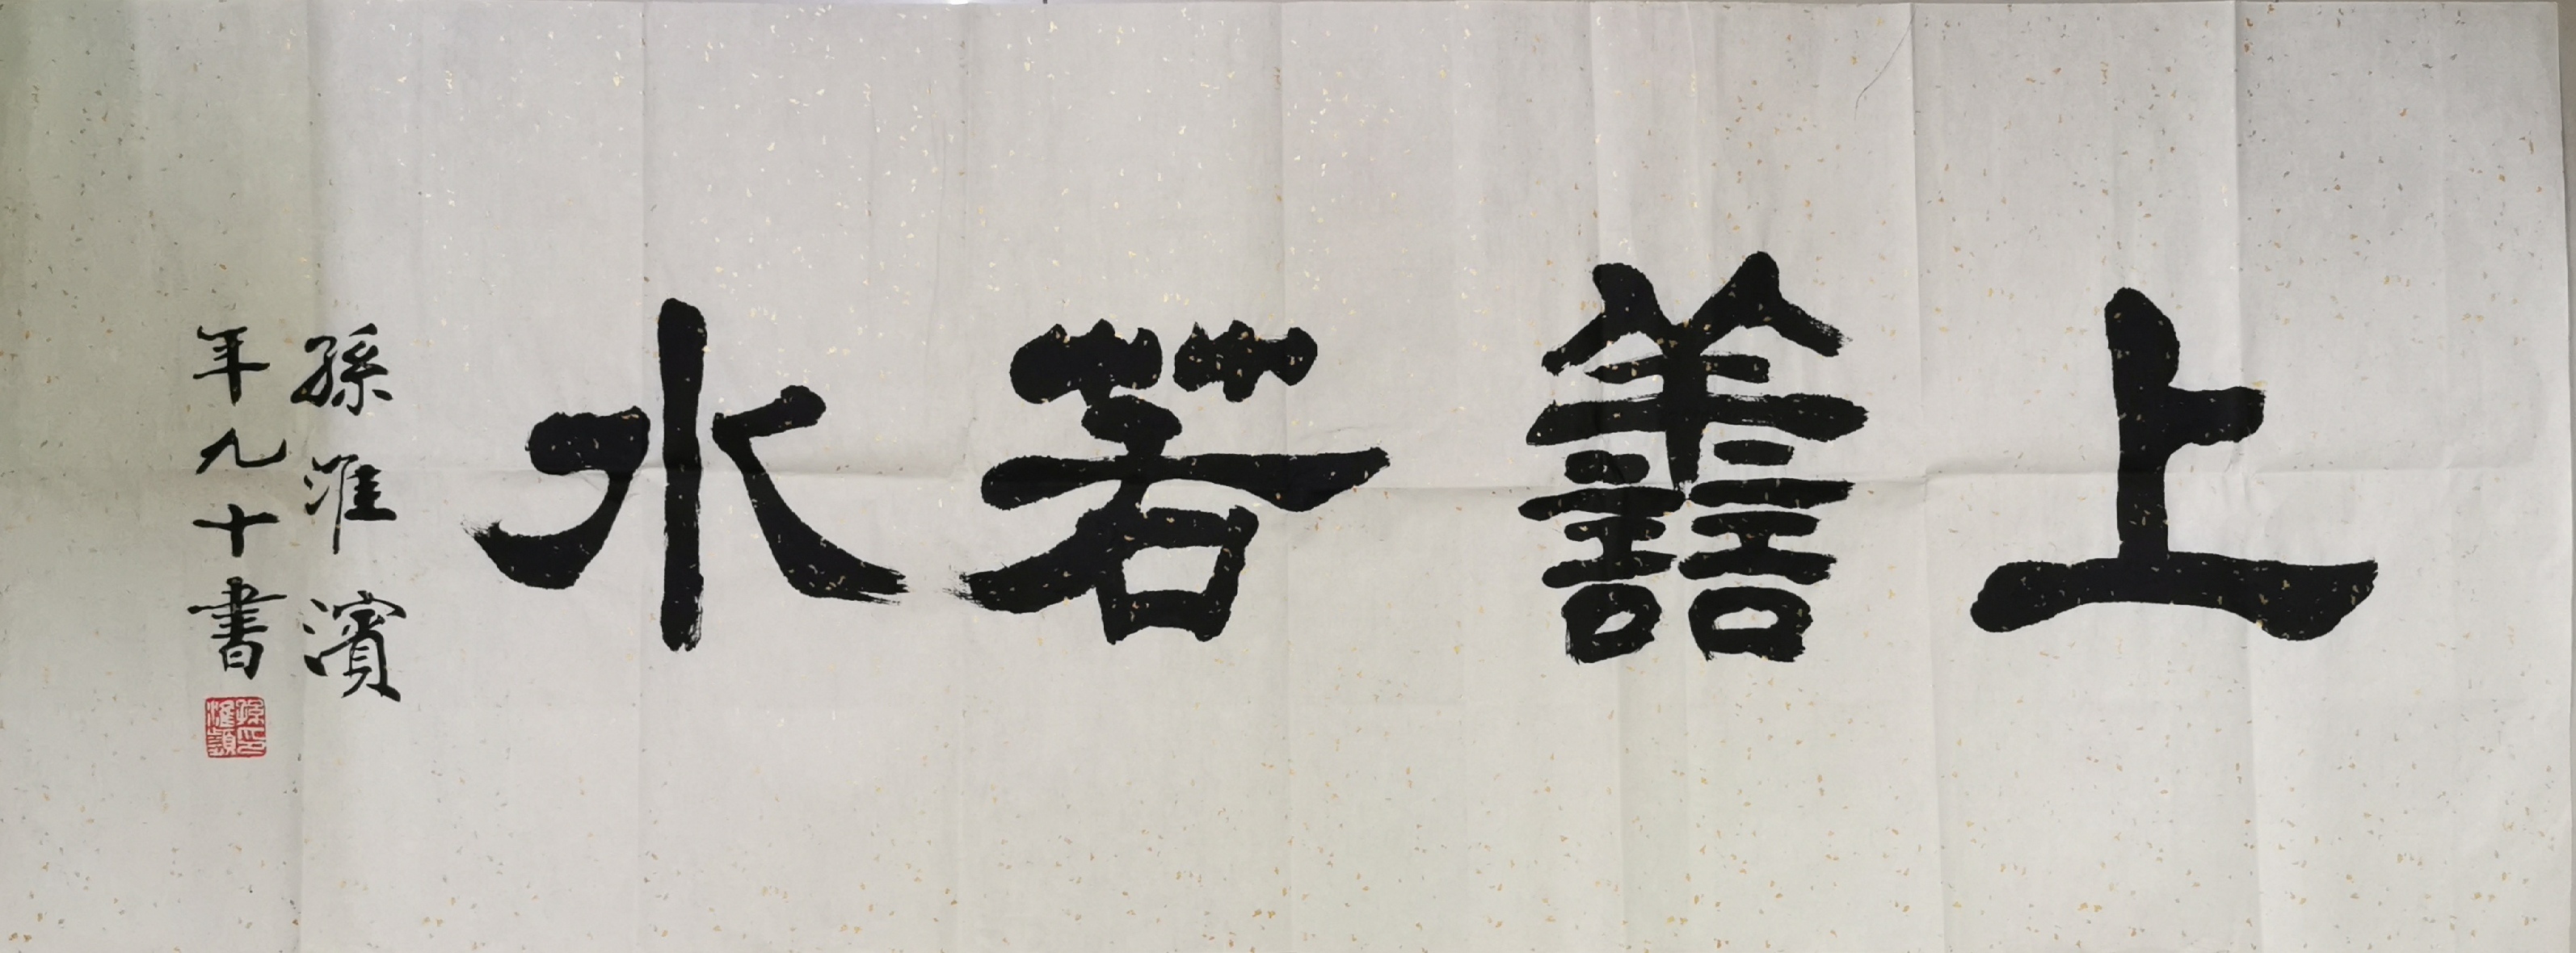 上善若水
孫淮濱
年九十書
孫淮濱印